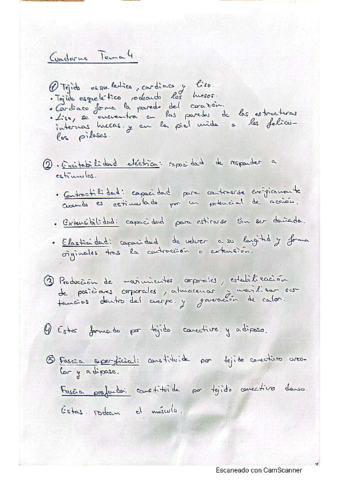 Cuaderno Tema 4
① Tejido esquelético, cardiaco y liso.
• Tejido esquelético rodeando los huesos.
• Cardiaco forma la pared del corazón.
• Liso, se encuentra en las paredes de las estructuras
internas huecas, y en la piel unido a los folícu-
los pilosos.
② • Excitabilidad eléctrica: capacidad de responder a
estímulos.
• Contractilidad: capacidad para contraerse enérgicamente
cuando es estimulado por un potencial de acción.
• Extensibilidad: capacidad para estirarse sin ser dañado.
• Elasticidad: capacidad de volver a su longitud y forma
originales tras la contracción o extensión.
③ Producción de movimientos corporales, estabilización
de posiciones corporales, almacenar y movilizar sus-
tancias dentro del cuerpo, y generación de calor.
④ Está formado por tejido conectivo y adiposo.
⑤ Fascia superficial: constituida por tejido conectivo areo-
lar y adiposo.
Fascia profunda: constituida por tejido conectivo denso
Estas rodean el músculo.
Escaneado con CamScanner